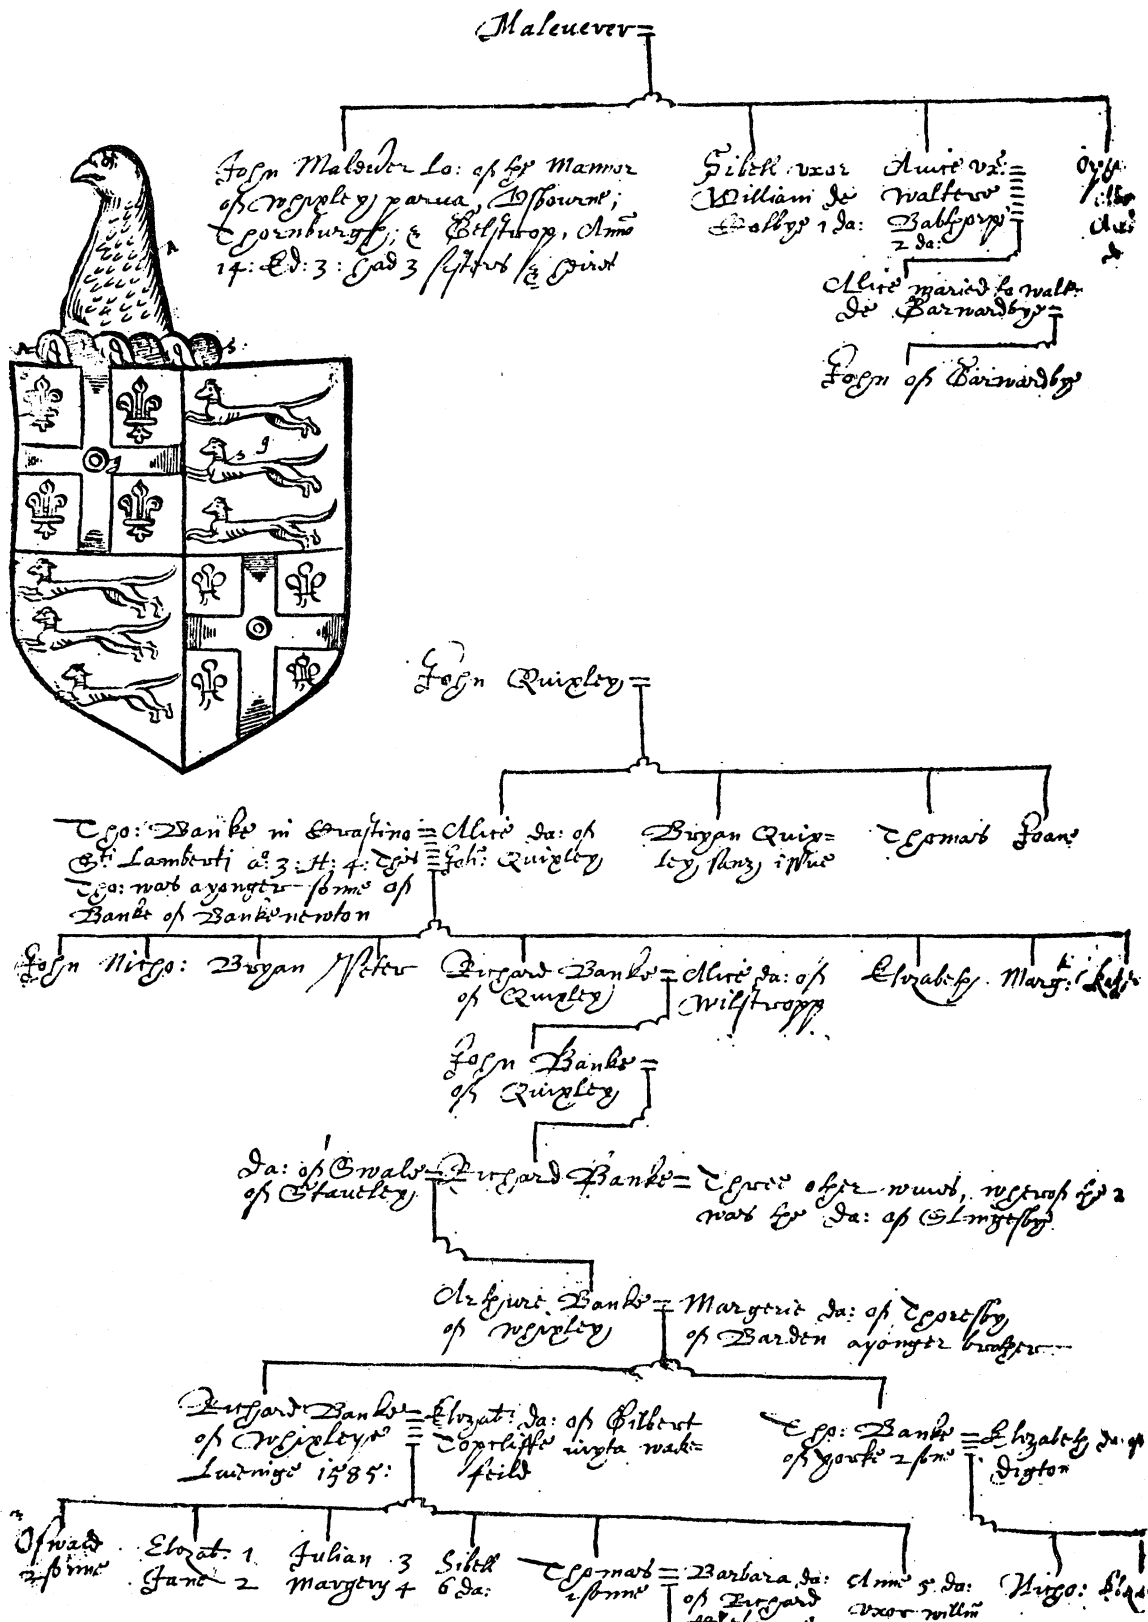 Maleuerer
John Malevier Lo: of the Mannor
of Whixley parua, Vsbourne;
Thornburgh; & Belstrop, Anno
14: Ed: 3: had 3 sisters & heires
Sibell vxor
William de
Colbye 1 da:
Auice vx:
Waltero
Babthorpp
2 da:
Alice maried to Walt:
de Barnardbye
John of Barnardby
A
A S:
S g
John Quixley
Tho: Banke in Crastino
Sti Lamberti ao: 3: H: 4: This
Tho: was a yonger sonne of
Banke of Bankenewton
Alice da: of
Joh: Quixley
Bryan Quix=
ley, sanz issue
Thomas
Joane
John
Nicho:
Bryan
Peter
Richard Banke
of Quixley
Alice da: of
Wilstropp
Elizabeth
Marg:t
John Banke
of Quixley
da: of Swale
of Staueley
Richard Banke
Three other wiues, wherof the 2
was the da: of Slingesbye
Arthure Banke
of Whixley
Margerie da: of Thoresby
of Barden a yonger brother
Richard Banke
of Whixleye
Liueinge 1585:
Elizab: da: of Gilbert
Topcliffe iuxta Wake=
feild
Tho: Banke
of Yorke 2 sone
Elizabeth da: of
digton
Oswald
2 sonne
Elizab: 1
Jane 2
Julian 3
Margery 4
Sibell
6 da:
Thomas
1 sonne
Barbara da:
of Richard
Anne 5 da:
vxor Willm
Nicho: